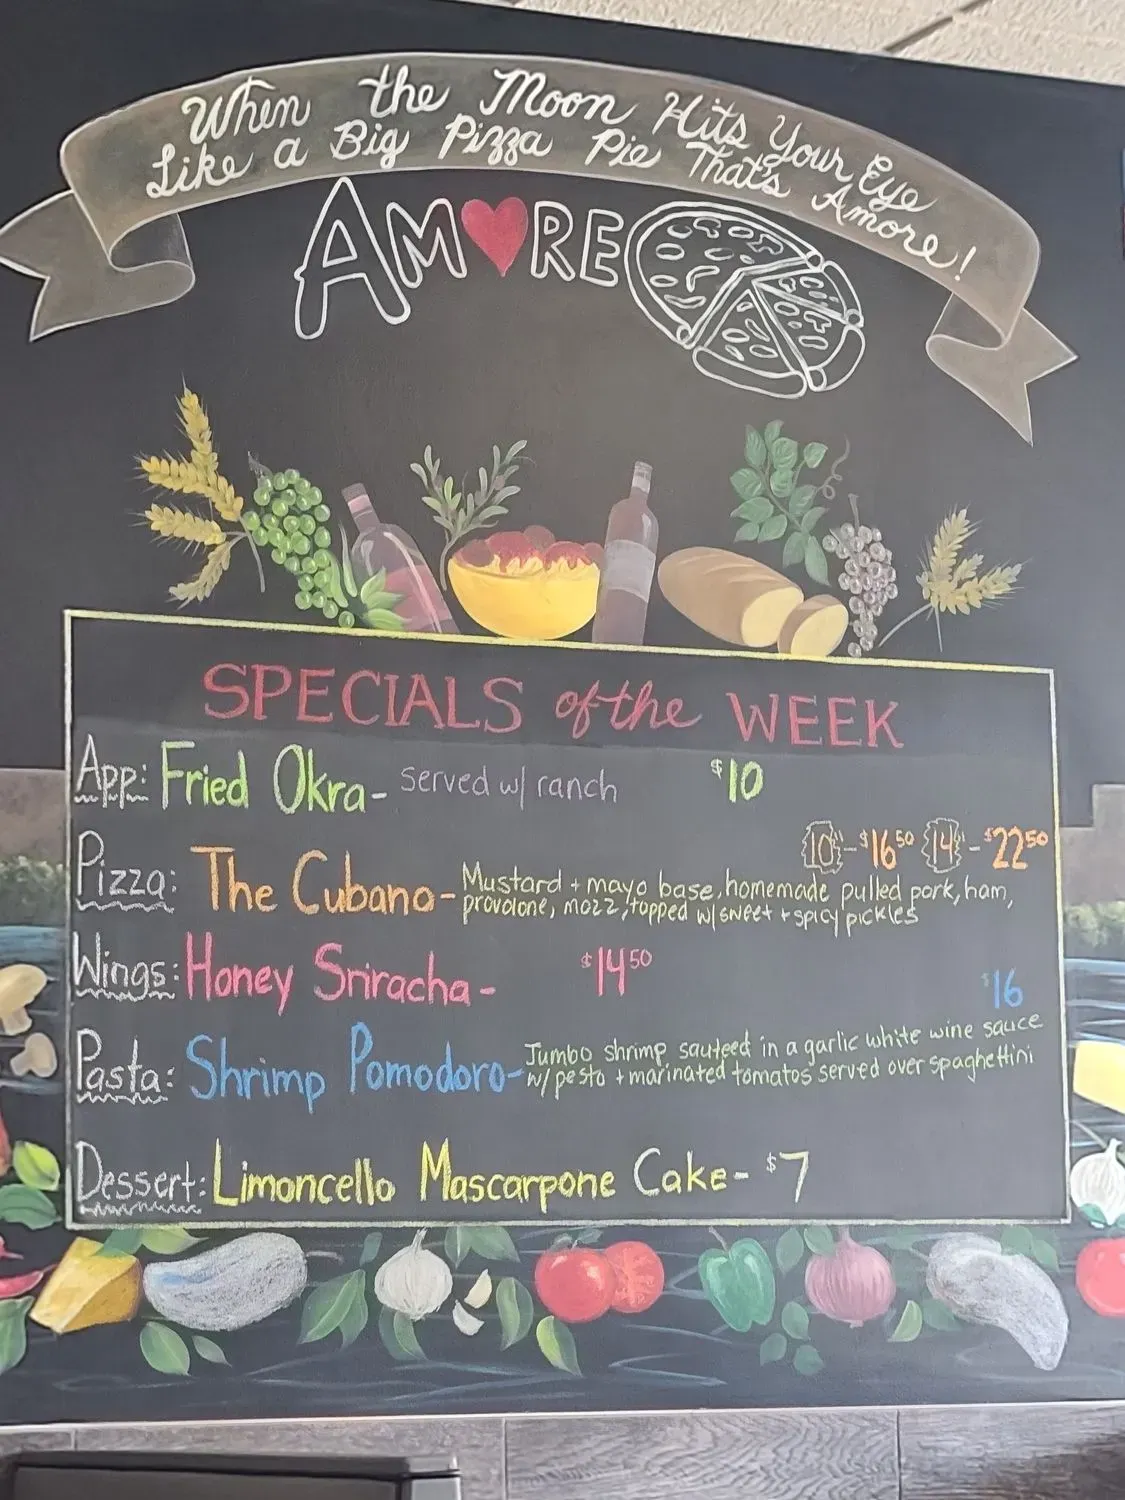 When the Moon Hits Your Eye
Like a Big Pizza Pie That's Amore!
AMORE
SPECIALS of the WEEK
App: Fried Okra - served w/ ranch $10
10" - $16.50 14" - $22.50
Pizza: The Cubano - Mustard + mayo base, homemade pulled pork, ham,
provolone, mozz, topped w/ sweet + spicy pickles
Wings: Honey Sriracha - $14.50
$16
Pasta: Shrimp Pomodoro - Jumbo shrimp sauteed in a garlic white wine sauce
w/ pesto + marinated tomatos served over spaghettini
Dessert: Limoncello Mascarpone Cake - $7